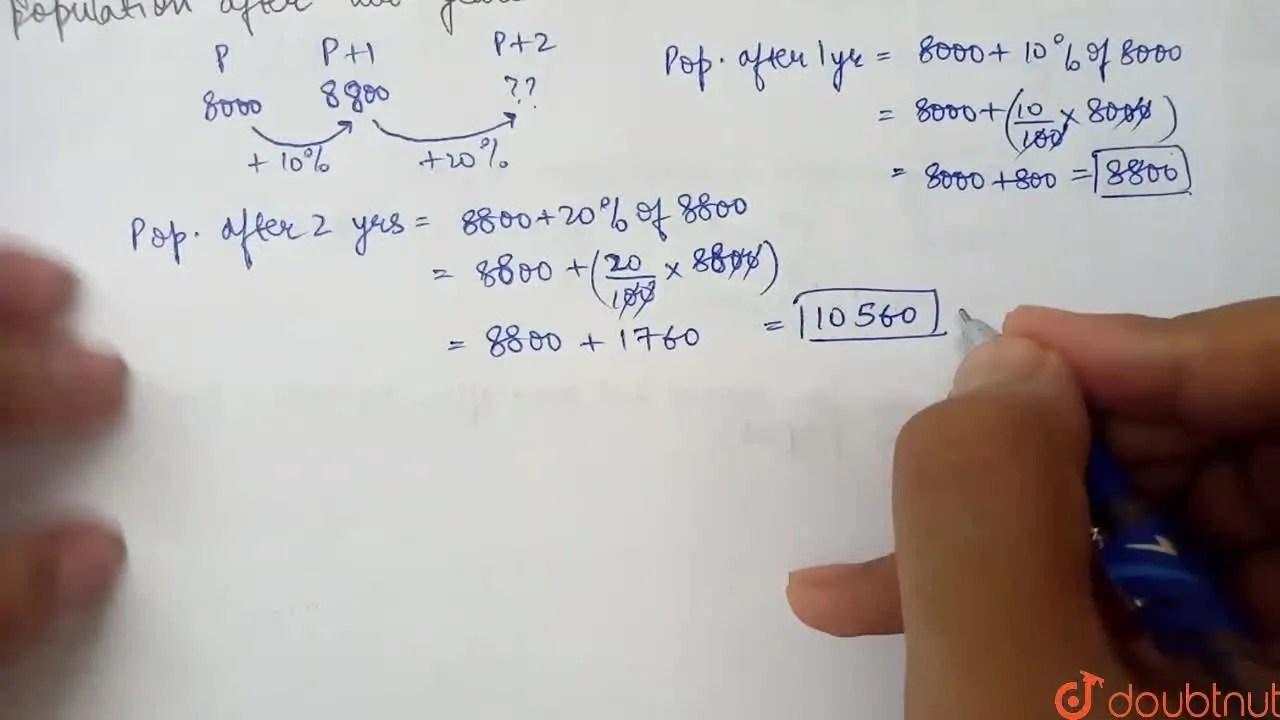 population after two years
P P+1 P+2
8000 8800 ??
+10% +20%
Pop. after 1yr = 8000 + 10% of 8000
= 8000 + (10/100 × 8000)
= 8000 + 800 = 8800
Pop. after 2 yrs = 8800 + 20% of 8800
= 8800 + (20/100 × 8800)
= 8800 + 1760 = 10560
doubtnut